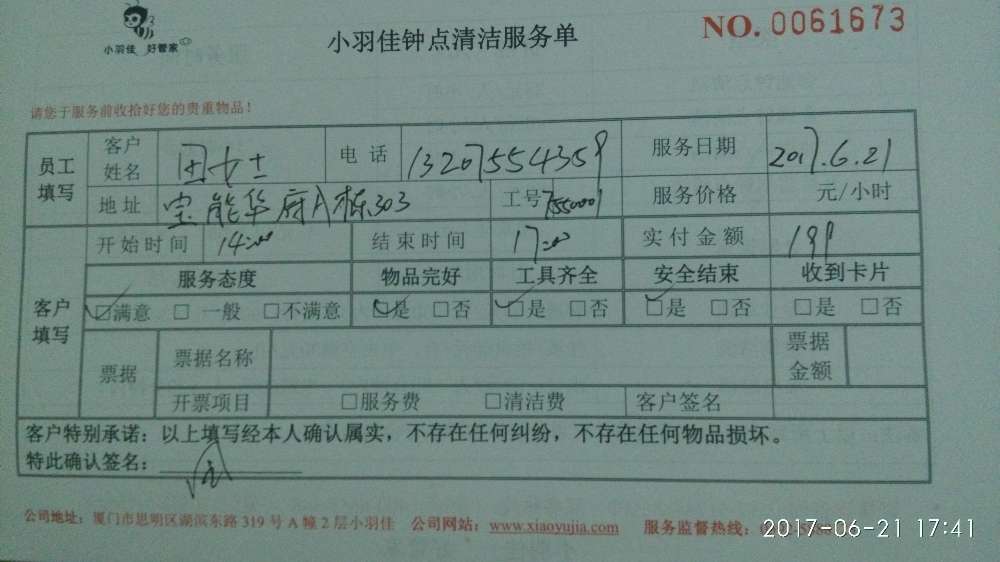 小羽佳 好管家
小羽佳钟点清洁服务单
NO. 0061673
请您于服务前收拾好您的贵重物品！
员工填写 客户姓名 田女士 电话 13207554359 服务日期 2017.6.21
地址 宝能华府A栋303 工号 服务价格 元/小时
客户填写 开始时间 14:00 结束时间 17:00 实付金额 199
服务态度 物品完好 工具齐全 安全结束 收到卡片
☑满意 □ 一般 □不满意 ☑是 □否 ☑是 □否 ☑是 □否 □是 □否
票据 票据名称 票据金额
开票项目 □服务费 □清洁费 客户签名
客户特别承诺：以上填写经本人确认属实，不存在任何纠纷，不存在任何物品损坏。
特此确认签名：
公司地址：厦门市思明区湖滨东路 319 号 A 幢 2 层小羽佳 公司网站：www.xiaoyujia.com 服务监督热线：
2017-06-21 17:41